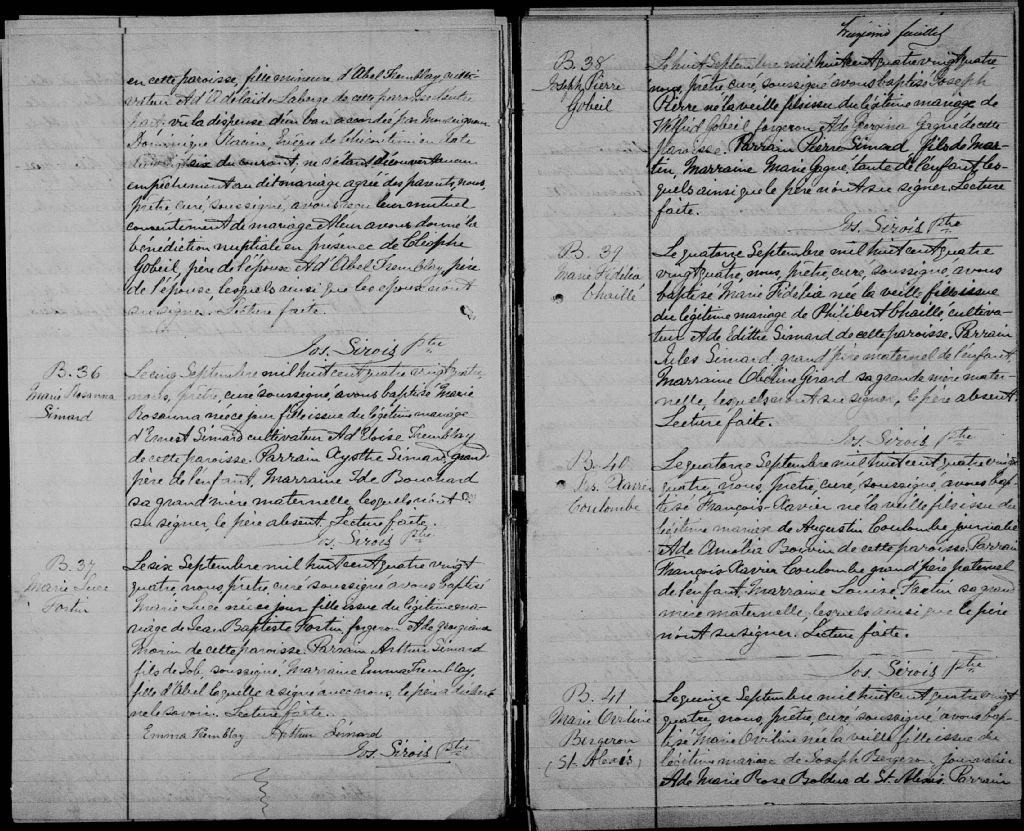 en cette paroisse, fille mineure d'Abel Tremblay culti-
vateur & d'Adelaïde Laberge de cette paroisse d'autre
part, vu la dispense d'un ban accordée par Monseigneur
Dominique Racine, Evêque de Chicoutimi en date
du six du courant; ne s'étant découvert aucun
empêchement au dit mariage agréé des parents, nous,
prêtre, curé, soussigné, avons reçu leur mutuel
consentement de mariage & leur avons donné la
bénédiction nuptiale en présence de Cléophe
Gobeil, père de l'époux & d'Abel Tremblay, père
de l'épouse, lesquels ainsi que les époux n'ont
su signer. Lecture faite.
Jos. Sirois Ptre
B. 36
Marie Rosanna
Simard
Le cinq Septembre mil huit cent quatre vingt quatre,
nous, prêtre, curé soussigné, avons baptisé Marie
Rosanna née ce jour fille issue du légitime mariage
d'Ernest Simard cultivateur & d'Eloïse Tremblay
de cette paroisse. Parrain Simard, grand
père de l'enfant, Marraine Ide Bouchard
sa grand'mère maternelle, lesquels n'ont
su signer, le père absent. Lecture faite.
Jos. Sirois Ptre
B. 37
Marie Luce
Fortin
Le six Septembre mil huit cent quatre vingt
quatre, nous prêtre curé soussigné avons baptisé
Marie Luce née ce jour fille issue du légitime ma-
riage de Jean Baptiste Fortin forgeron & de Georgiana
Morin de cette paroisse. Parrain Arthur Simard
fils de Job, soussigné, Marraine Emma Tremblay,
fille d'Abel laquelle a signé avec nous, le père a déclaré
ne le savoir. Lecture faite.
Emma Tremblay Arthur Simard
Jos. Sirois Ptre
feuillet
B. 38
Joseph Pierre
Gobeil
Le huit Septembre mil huit cent quatre vingt quatre
nous, prêtre, curé, soussigné avons baptisé Joseph
Pierre né la veille fils issu du légitime mariage de
Wilfrid Gobeil forgeron & de Georgina Gagné de cette
paroisse. Parrain Pierre Simard fils de Mar-
tin, Marraine Marie Gagné, tante de l'enfant, les-
quels ainsi que le père n'ont su signer. Lecture
faite.
Jos. Sirois Ptre
B. 39
Marie Fidélia
Chaillé
Le quatorze Septembre mil huit cent quatre
vingt quatre, nous, prêtre, curé, soussigné, avons
baptisé Marie Fidélia née la veille fille issue
du légitime mariage de Philibert Chaillé, cultiva-
teur & de Edithe Simard de cette paroisse. Parrain
Jules Simard, grand père maternel de l'enfant,
Marraine Girard sa grande mère mater-
nelle, lesquels n'ont su signer, le père absent.
Lecture faite.
Jos. Sirois Ptre
B. 40
Frs. Xavier
Coulombe
Le quatorze Septembre mil huit cent quatre vingt
quatre, nous, prêtre, curé, soussigné, avons bap-
tisé François Xavier né la veille fils issu du
légitime mariage de Augustin Coulombe, journalier
& de Amélia Boivin de cette paroisse. Parrain
François Xavier Coulombe grand père paternel
de l'enfant, Marraine Louise Fortin sa grand
mère maternelle, lesquels ainsi que le père
n'ont su signer. Lecture faite.
Jos. Sirois Ptre
B. 41
Marie Oviline
Bergeron
(St. Alexis)
Le quinze Septembre mil huit cent quatre vingt
quatre, nous, prêtre, curé, soussigné avons bap-
tisé Marie Oviline née la veille fille issue du
légitime mariage de Joseph Bergeron journalier
& de Marie Rose Bolduc de St. Alexis. Parrain